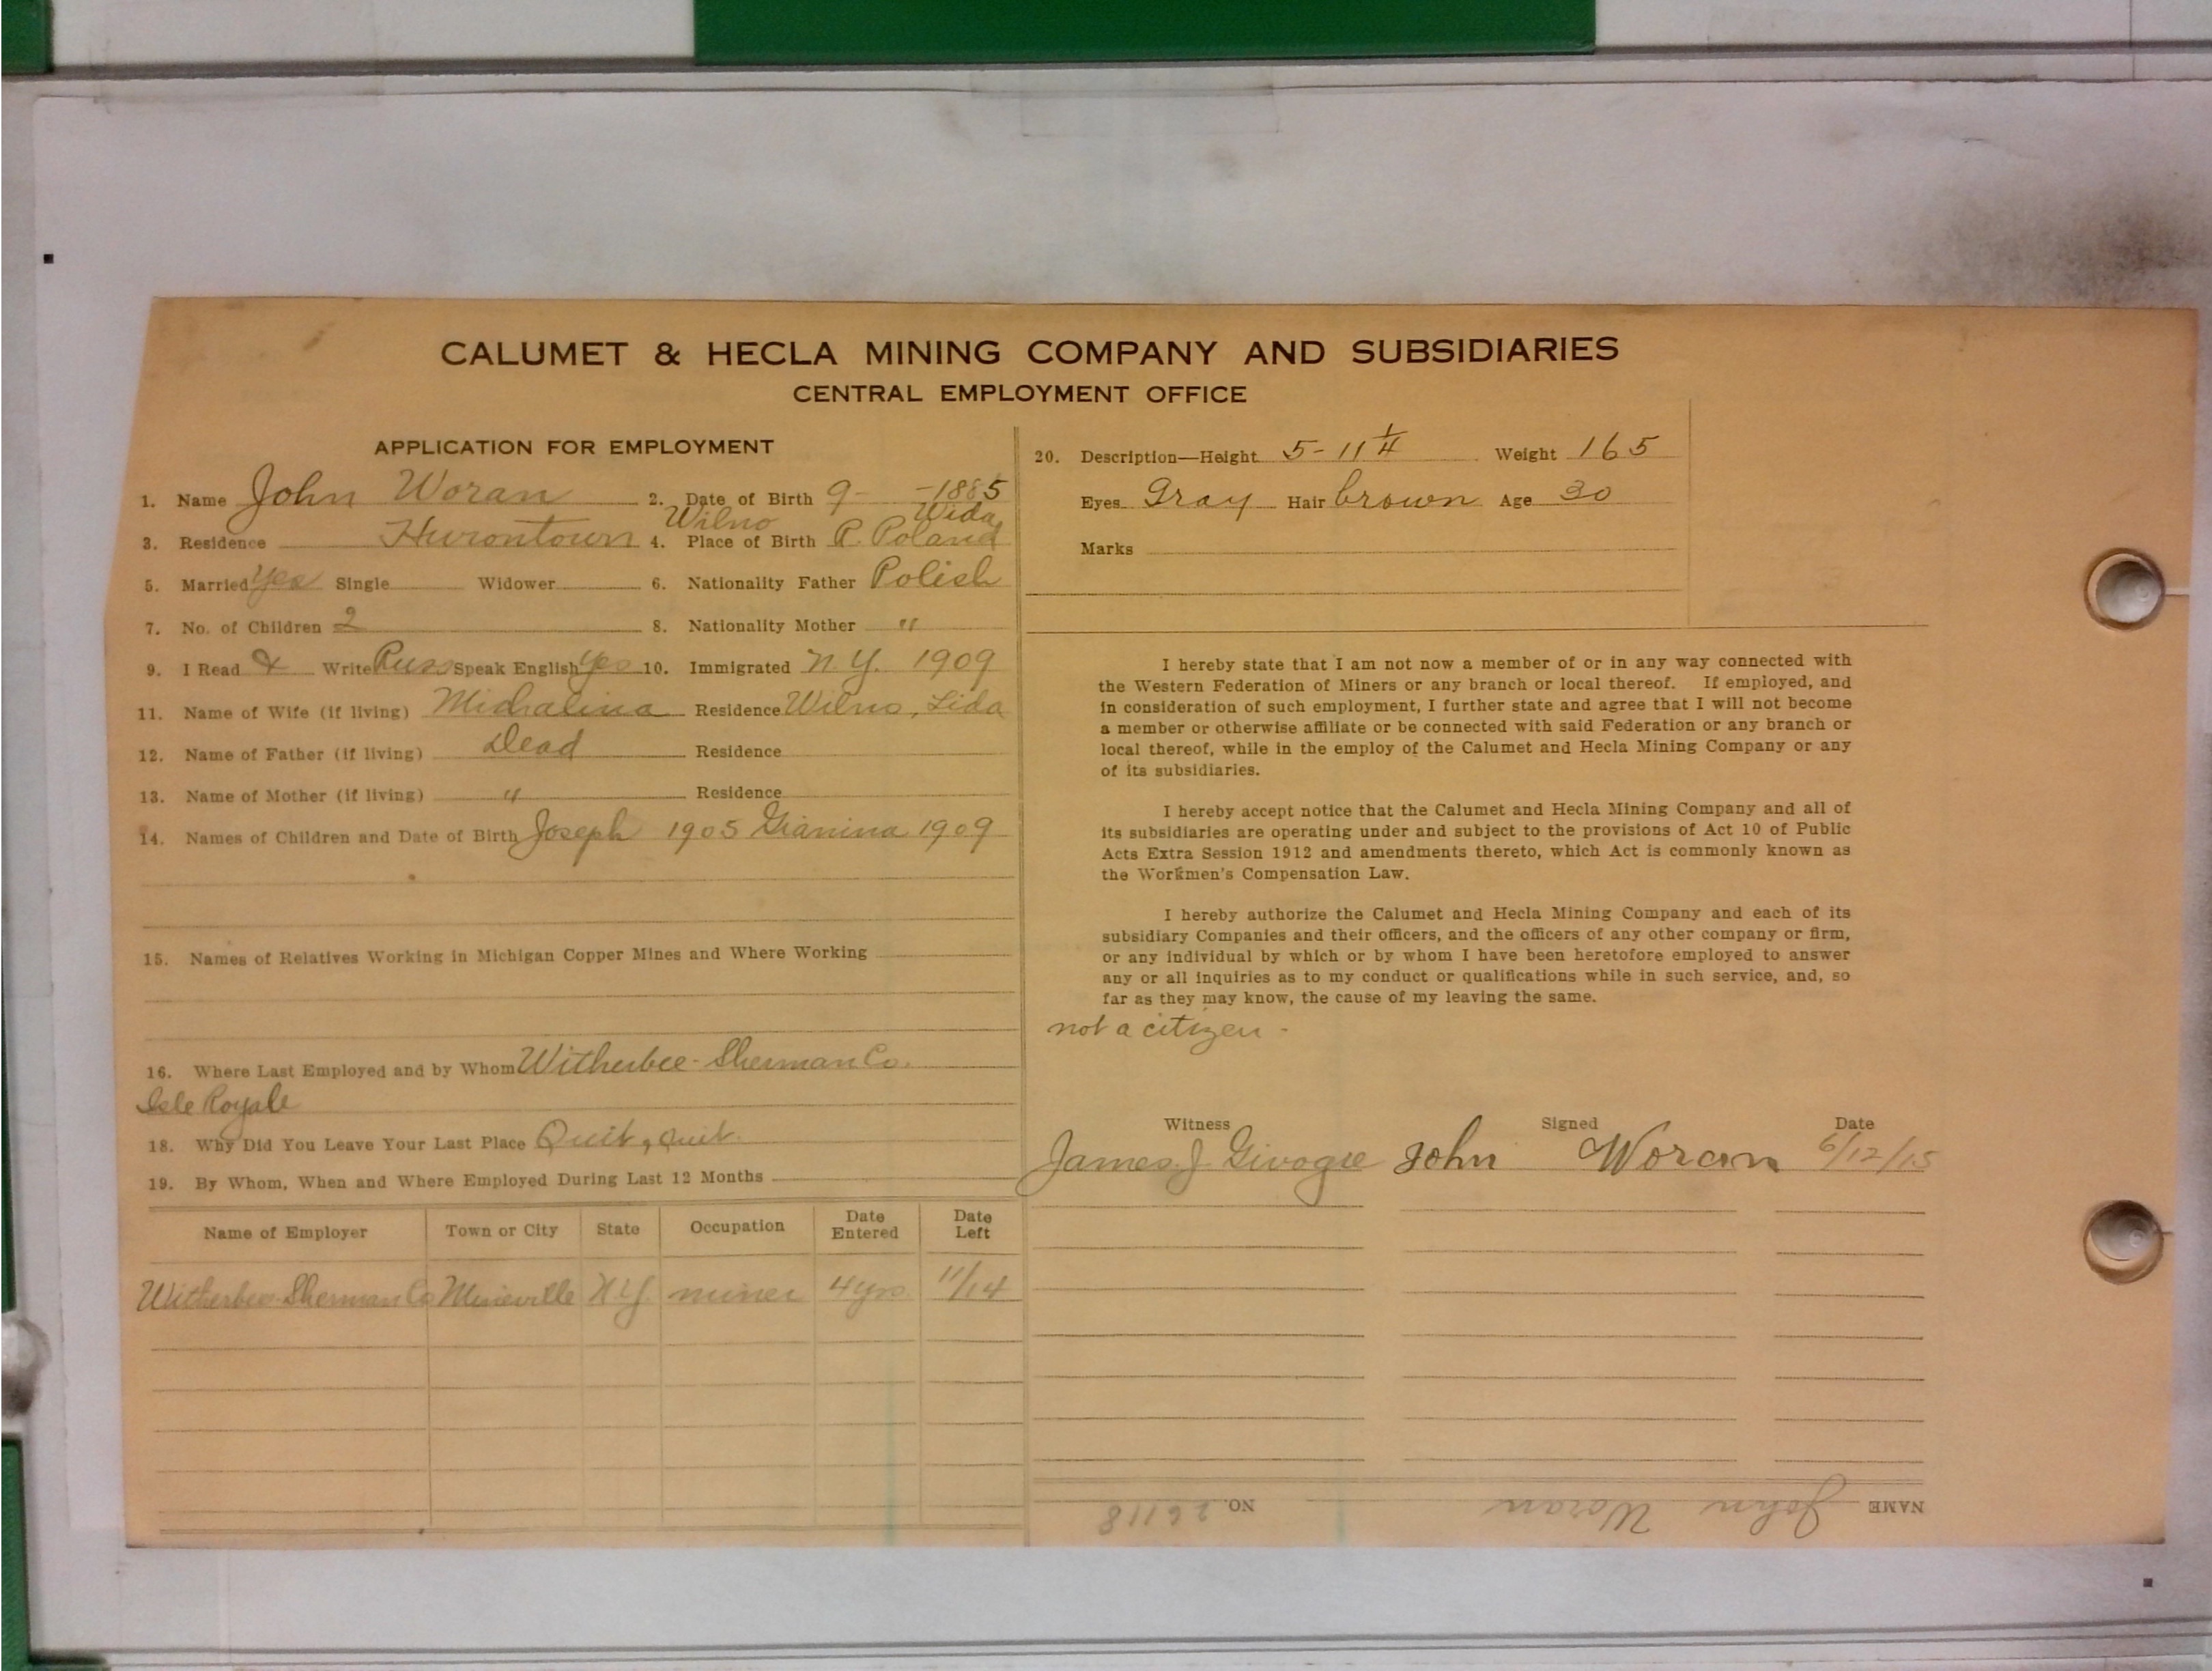 CALUMET & HECLA MINING COMPANY AND SUBSIDIARIES
CENTRAL EMPLOYMENT OFFICE
APPLICATION FOR EMPLOYMENT
1. Name John Woran 2. Date of Birth 9- -1885
Wilno Wida
3. Residence Hurontown 4. Place of Birth R. Poland
5. Married Yes Single Widower 6. Nationality Father Polish
7. No. of Children 2 8. Nationality Mother "
9. I Read & Write Russ Speak English Yes 10. Immigrated N.Y. 1909
11. Name of Wife (if living) Michalina Residence Wilno, Lida
12. Name of Father (if living) Dead Residence
13. Name of Mother (if living) " Residence
14. Names of Children and Date of Birth Joseph 1905 Gianina 1909
15. Names of Relatives Working in Michigan Copper Mines and Where Working
16. Where Last Employed and by Whom Witherbee-Sherman Co.
Isle Royale
18. Why Did You Leave Your Last Place Quit, quit.
19. By Whom, When and Where Employed During Last 12 Months
Name of Employer Town or City State Occupation Date Entered Date Left
Witherbee-Sherman Co Mineville N.Y. miner 4 yrs 11/14
20. Description—Height 5-11 1/4 Weight 165
Eyes Gray Hair brown Age 30
Marks
I hereby state that I am not now a member of or in any way connected with
the Western Federation of Miners or any branch or local thereof. If employed, and
in consideration of such employment, I further state and agree that I will not become
a member or otherwise affiliate or be connected with said Federation or any branch or
local thereof, while in the employ of the Calumet and Hecla Mining Company or any
of its subsidiaries.
I hereby accept notice that the Calumet and Hecla Mining Company and all of
its subsidiaries are operating under and subject to the provisions of Act 10 of Public
Acts Extra Session 1912 and amendments thereto, which Act is commonly known as
the Workmen's Compensation Law.
I hereby authorize the Calumet and Hecla Mining Company and each of its
subsidiary Companies and their officers, and the officers of any other company or firm,
or any individual by which or by whom I have been heretofore employed to answer
any or all inquiries as to my conduct or qualifications while in such service, and, so
far as they may know, the cause of my leaving the same.
not a citizen -
Witness Signed Date
James J. John Woran 6/12/15
NAME John Woran NO. 26118